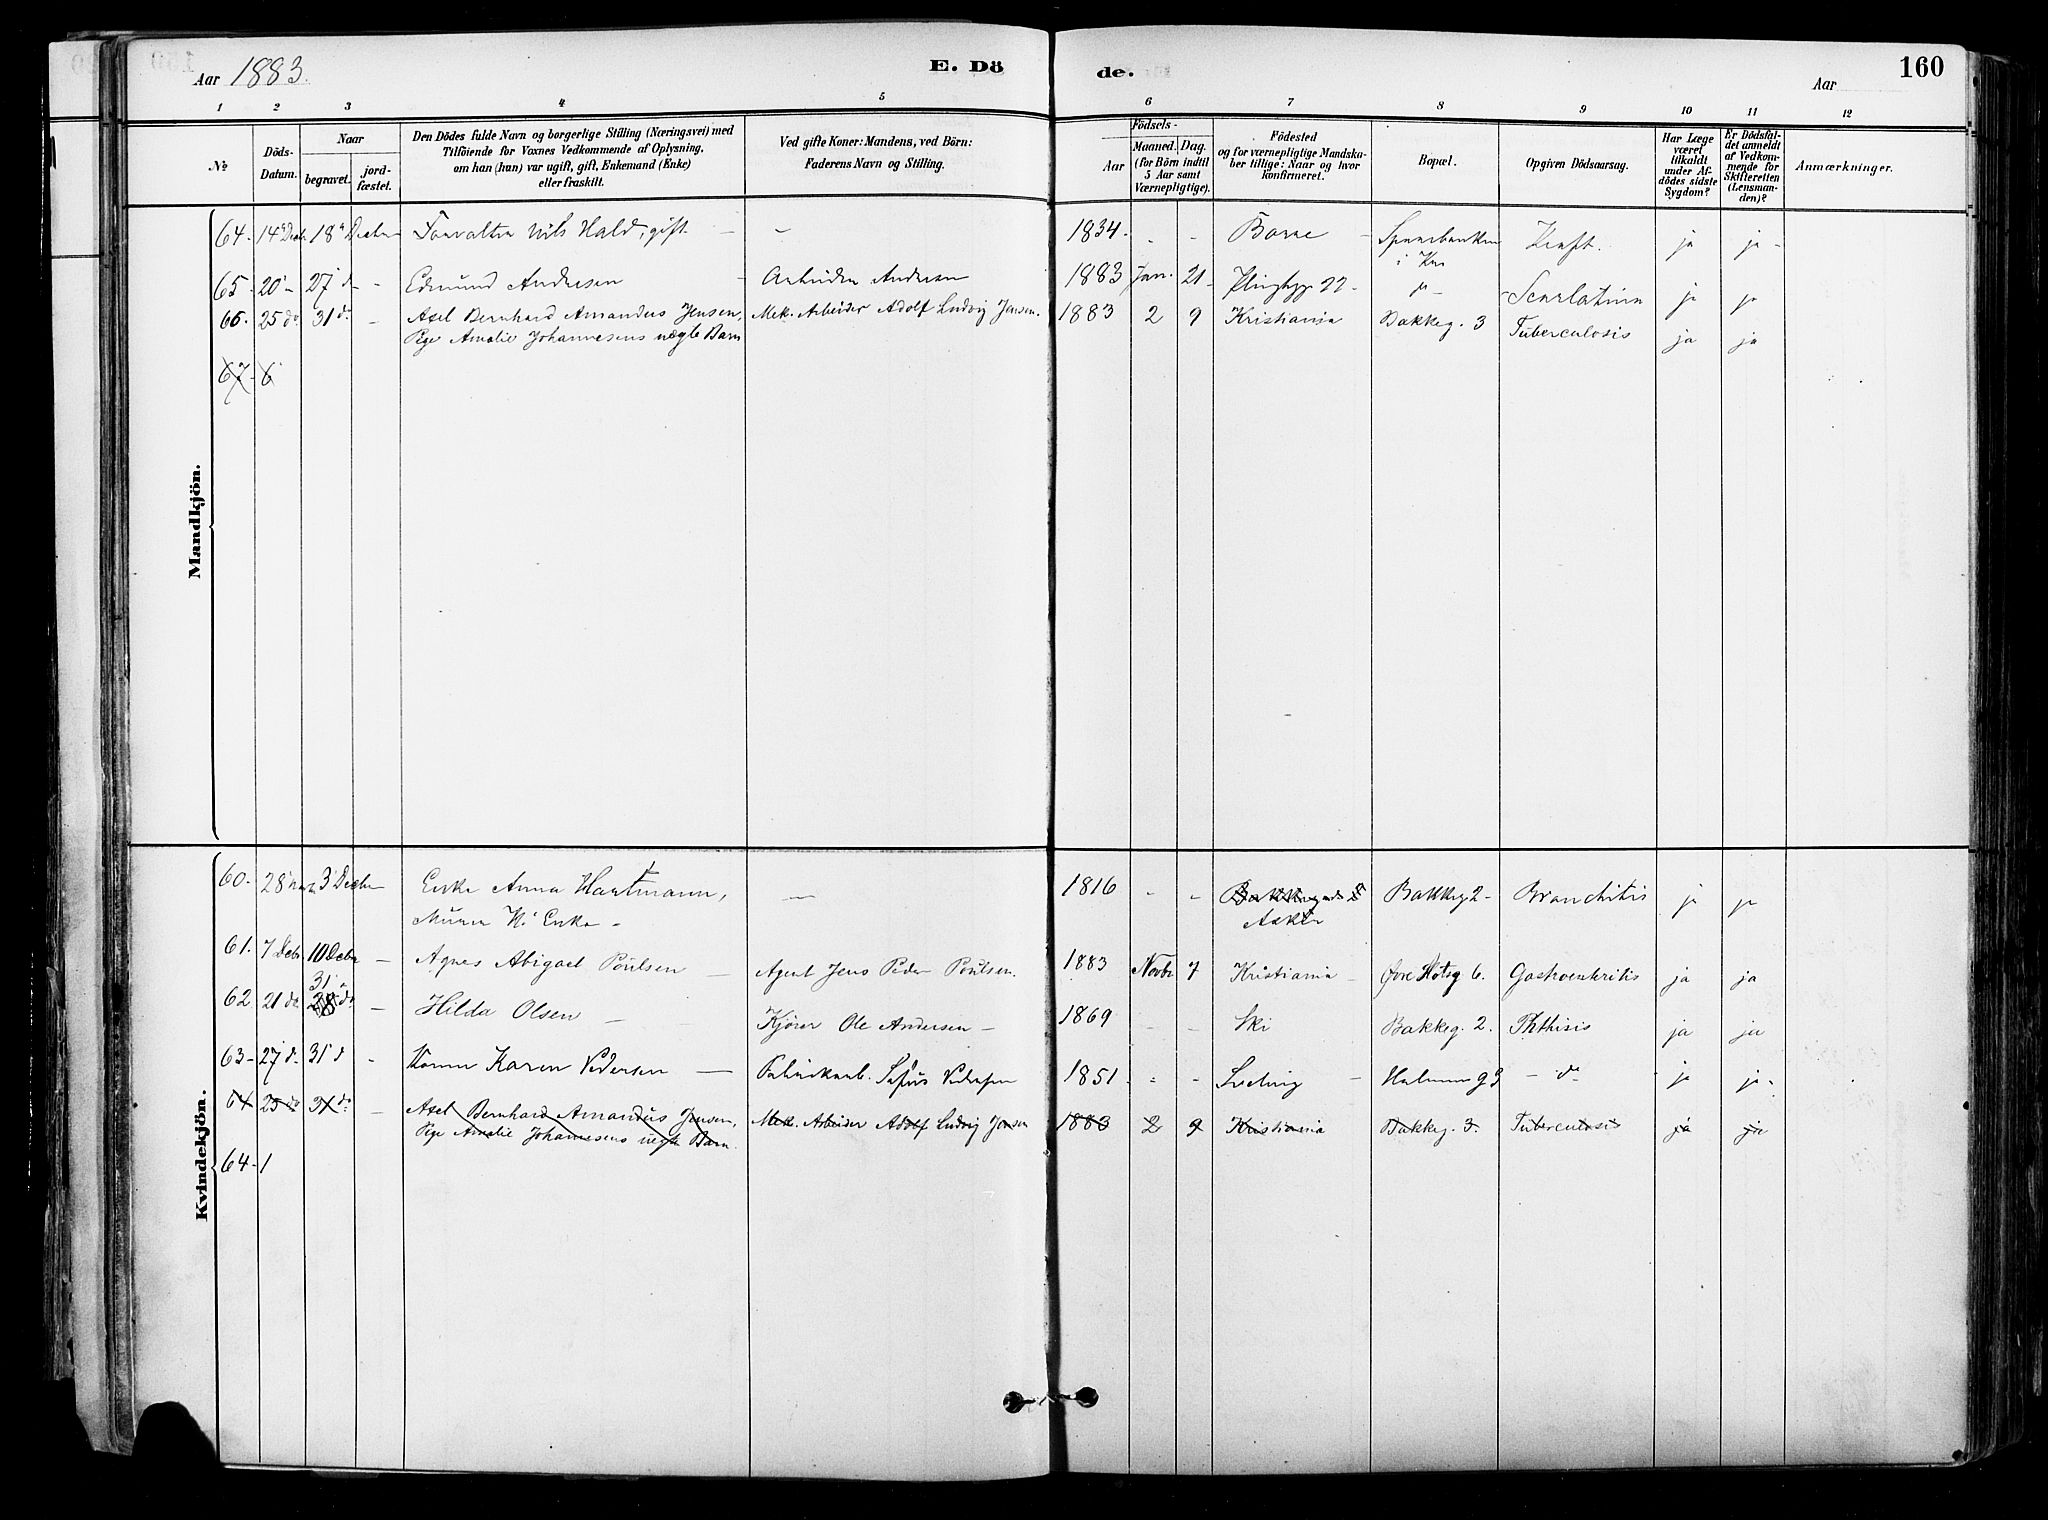 Aar 1883.
E. Dö
de.
Aar
160
1 2 3 4 5 6 7 8 9 10 11 12
No
Döds-Datum.
Naar
begravet.
jord-fæstet.
Den Dödes fulde Navn og borgerlige Stilling (Næringsvei) med
Tilföiende for Voxnes Vedkommende af Oplysning,
om han (hun) var ugift, gift, Enkemand (Enke)
eller fraskilt.
Ved gifte Koner: Mandens, ved Börn:
Faderens Navn og Stilling.
Födsels-
Aar
Maaned. Dag.
(for Börn indtil
5 Aar samt
Værnepligtige).
Födested
og for værnepligtige Mandska-
ber tillige: Naar og hvor
konfirmeret.
Bopæl.
Opgiven Dödsaarsag.
Har Læge
været
tilkaldt
under Af-
dödes sidste
Sygdom?
Er Dödsfal-
det anmeldt
af Vedkom-
mende for
Skifteretten
(Lensman-
den)?
Anmærkninger.
Mandkjön.
64. 14 Decbr 18 Decbr Nils Hald, gift 1834. Kræft. ja ja
65. 20 27 d Edmund Andresen Arbeider Andresen 1883 Jan. 21 22 Scarlatina ja ja
66. 25 do 31 do Axel Bernhard Amandus Jensen, Mek. Arbeider Adolf Ludvig Jensen. 1883 2 9 Kristiania Bakkeg. 3 Tuberculosis ja ja
Pige Amalie Johannesens uægte Barn
67 6
Kvindekjön.
60. 28 3 Decbr Enke Anna Hartmann, 1816 Bakkeg 2 Bronchitis ja ja
Enke Aker
61. 7 Debr. 10 Debr Agnes Abigael Poulsen Agent Jens Peder Poulsen. 1883 Novbr 7 Kristiania Øvre Slotsg 6. Gastroenteritis ja ja
62 21 do 31 28 do Hilda Olsen Kjører Ole Andersen 1869 Ski Bakkeg. 2. Phthisis ja ja
63 27 d 31 d Kone Karen Pedersen 1851 do ja ja
64 25 do 31 do Axel Bernhard Amandus Jensen, Mek. Arbeider Adolf Ludvig Jensen 1883 2 9 Kristiania Bakkeg. 3. Tuberculosis ja ja
Pige Amalie Johannesens uægte Barn.
64 1